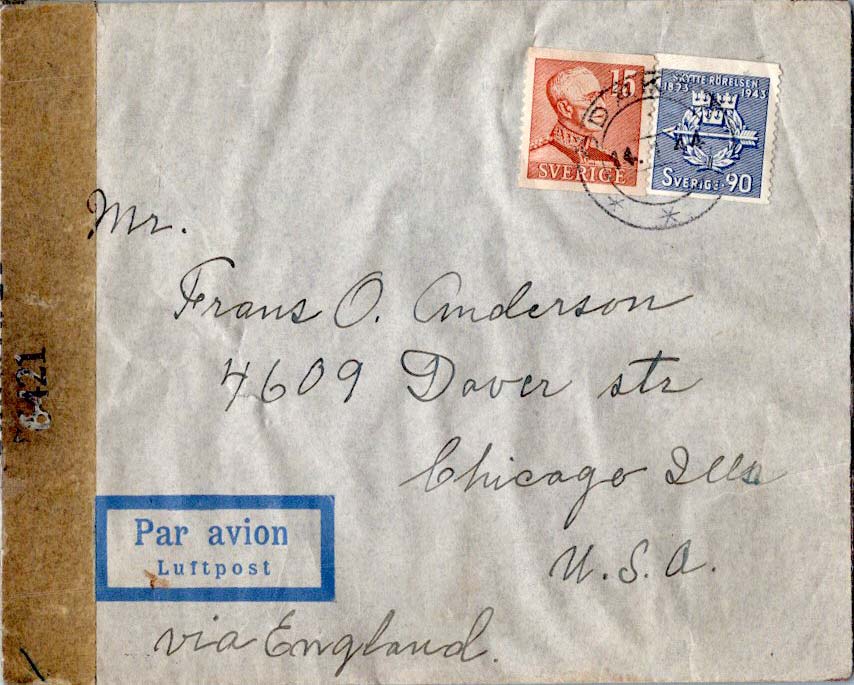 15
SVERIGE
SKYTTERÖRELSEN
1893 1943
SVERIGE·90
14. 44
Mr.
Frans O. Anderson
4609 Dover str
Chicago Ills
U.S.A.
6421
Par avion
Luftpost
via England.